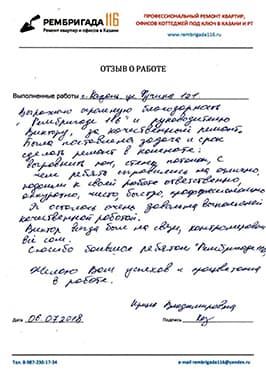 РЕМБРИГАДА116
Ремонт квартир и офисов в Казани
ПРОФЕССИОНАЛЬНЫЙ РЕМОНТ КВАРТИР,
ОФИСОВ КОТТЕДЖЕЙ ПОД КЛЮЧ В КАЗАНИ И РТ
www.rembrigada116.ru
ОТЗЫВ О РАБОТЕ
Выполненные работы г. Казань ул
Выражаю огромную благодарность
"Рембригаде 116" и руководителю
Виктору, за качественный ремонт.
Была поставлена задача и срок
сделать ремонт в комнате:
выровнять пол, стены, потолок, с
чем ребята справились на отлично,
подошли к своей работе ответственно,
аккуратно, чисто, быстро, профессионально
Я осталась очень довольна выполненной
качественной работой.
Виктор всегда был на связи, контролировал
всё сам.
Спасибо большое ребятам "Рембригада 116"
Желаю Вам успехов и процветания
в работе.
Ирина Владимировна
Дата 06.07.2018. Подпись
Тел. 8-987-230-17-34
e-mail: rembrigada116@yandex.ru